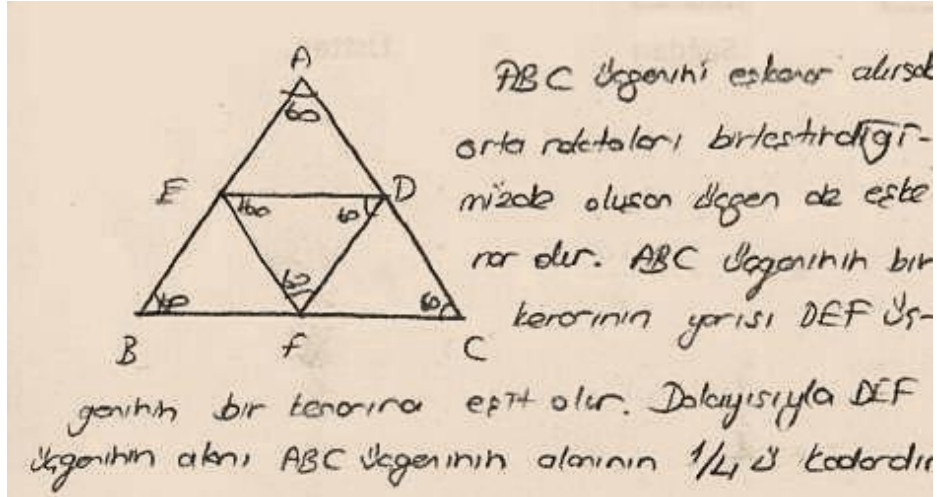 A
60
E
D
60
60
60
60
60
B
F
C
ABC üçgenini eşkenar alırsak
orta noktaları birleştirdiği-
mizde oluşan üçgen de eşke
nar olur. ABC üçgeninin bir
kenarının yarısı DEF üç-
geninin bir kenarına eşit olur. Dolayısıyla DEF
üçgeninin alanı ABC üçgeninin alanının 1/4 ü kadardır